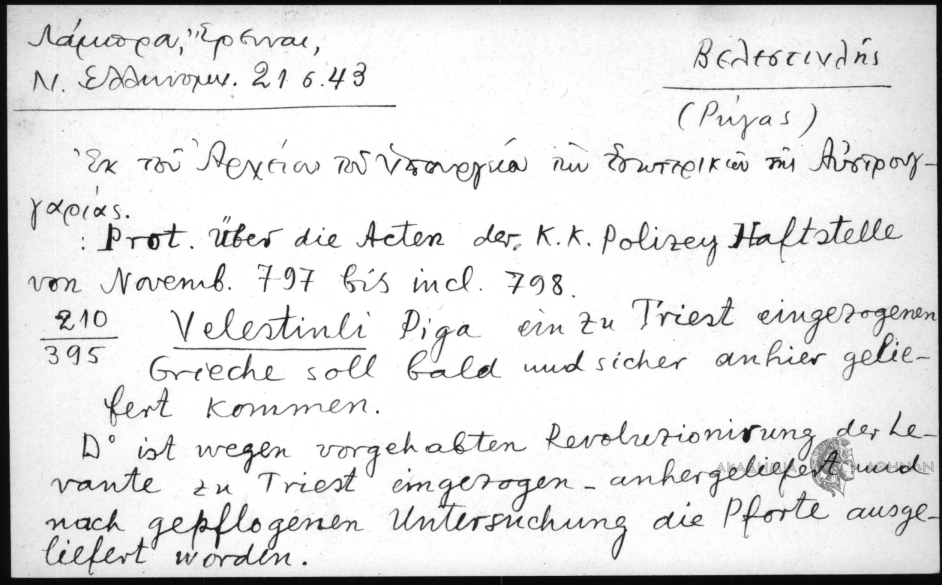 Λάμπρα, Ἔρευναι,
Ν. Ελληνομν. 21 σ. 43
Βελεστινλής
(Ρήγας)
Ἐκ τοῦ Ἀρχείου τοῦ Ὑπουργείου τῶν Ἐσωτερικῶν τῆς Αὐστρουγ-
γαρίας.
: Prot. Über die Acten der K.K. Polizey Haftstelle
von Novemb. 797 bis incl. 798.
210
395
Velestinli Piga ein zu Triest eingezogenen
Grieche soll bald und sicher anhier gelie-
fert kommen.
D° ist wegen vorgehabten Revoluzionirung der Le-
vante zu Triest eingezogen - anhergeliefert und
nach gepflogenen Untersuchung die Pforte ausge-
liefert worden.
ΑΚΑΔΗΜΙΑ ΑΘΗΝΩΝ